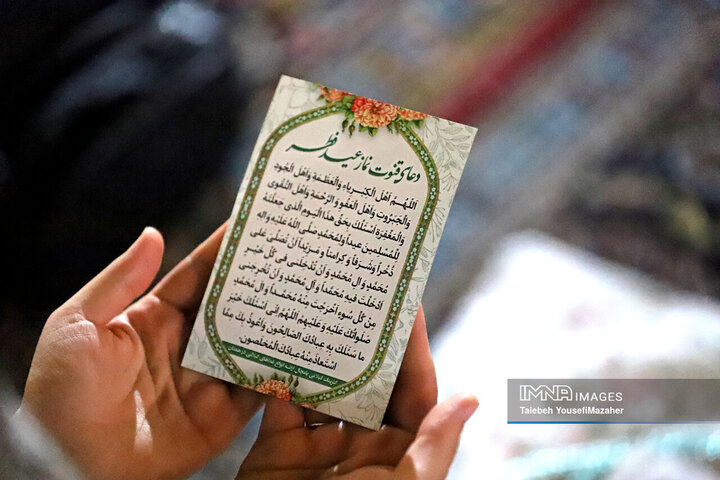 دعای قنوت نماز عید فطر
اَللّهُمَّ اَهْلَ الْکِبْرِیاءِ وَالْعَظَمَةِ وَاَهْلَ الْجُودِ
وَالْجَبَرُوتِ وَاَهْلَ الْعَفْوِ وَ الرَّحْمَةِ وَاَهْلَ التَّقْوی
وَ الْمَغْفِرَةِ اَسْئَلُکَ بِحَقِّ هذَا الْیَومِ الَّذی جَعَلْتَهُ
لِلْمُسْلِمینَ عیداً وَلِمُحَمَّدٍ صَلَّی اللهُ عَلَیْهِ وَ الِهِ
ذُخْراً وَ شَرَفاً وَ کَرامَتاً وَ مَزیداً اَنْ تُصَلِّیَ عَلی
مُحَمَّدٍ وَ الِ مُحَمَّدٍ وَ اَنْ تُدْخِلَنی فی کُلِّ خَیْرٍ
اَدْخَلْتَ فیهِ مُحَمَّداً وَ الَ مُحَمَّدٍ وَ اَنْ تُخْرِجَنی
مِنْ کُلِّ سُوءٍ اَخْرَجْتَ مِنْهُ مُحَمَّداً وَ الَ مُحَمَّدٍ
صَلَواتُکَ عَلَیْهِ وَ عَلَیْهِمْ اَللّهُمَّ اِنّی اَسْئَلُکَ خَیْرَ
ما سَئَلَکَ بِهِ عِبادُکَ الصّالِحُونَ وَ اَعُوذُ بِکَ مِمَّا
اسْتَعاذَ مِنْهُ عِبادُکَ الْمُخْلَصُونَ.
IMNA IMAGES
Taiebeh YousefiMazaher